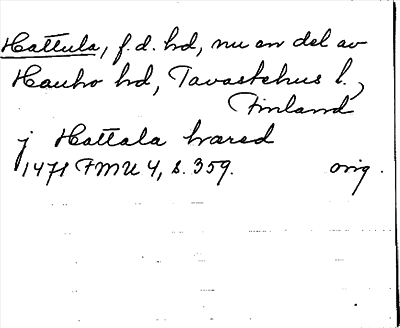 Hattula, f.d. hd, nu en del av
Hauho hd, Tavastehus l.,
Finland
j Hattala hæred
1471 FMU 4, s. 359. orig.